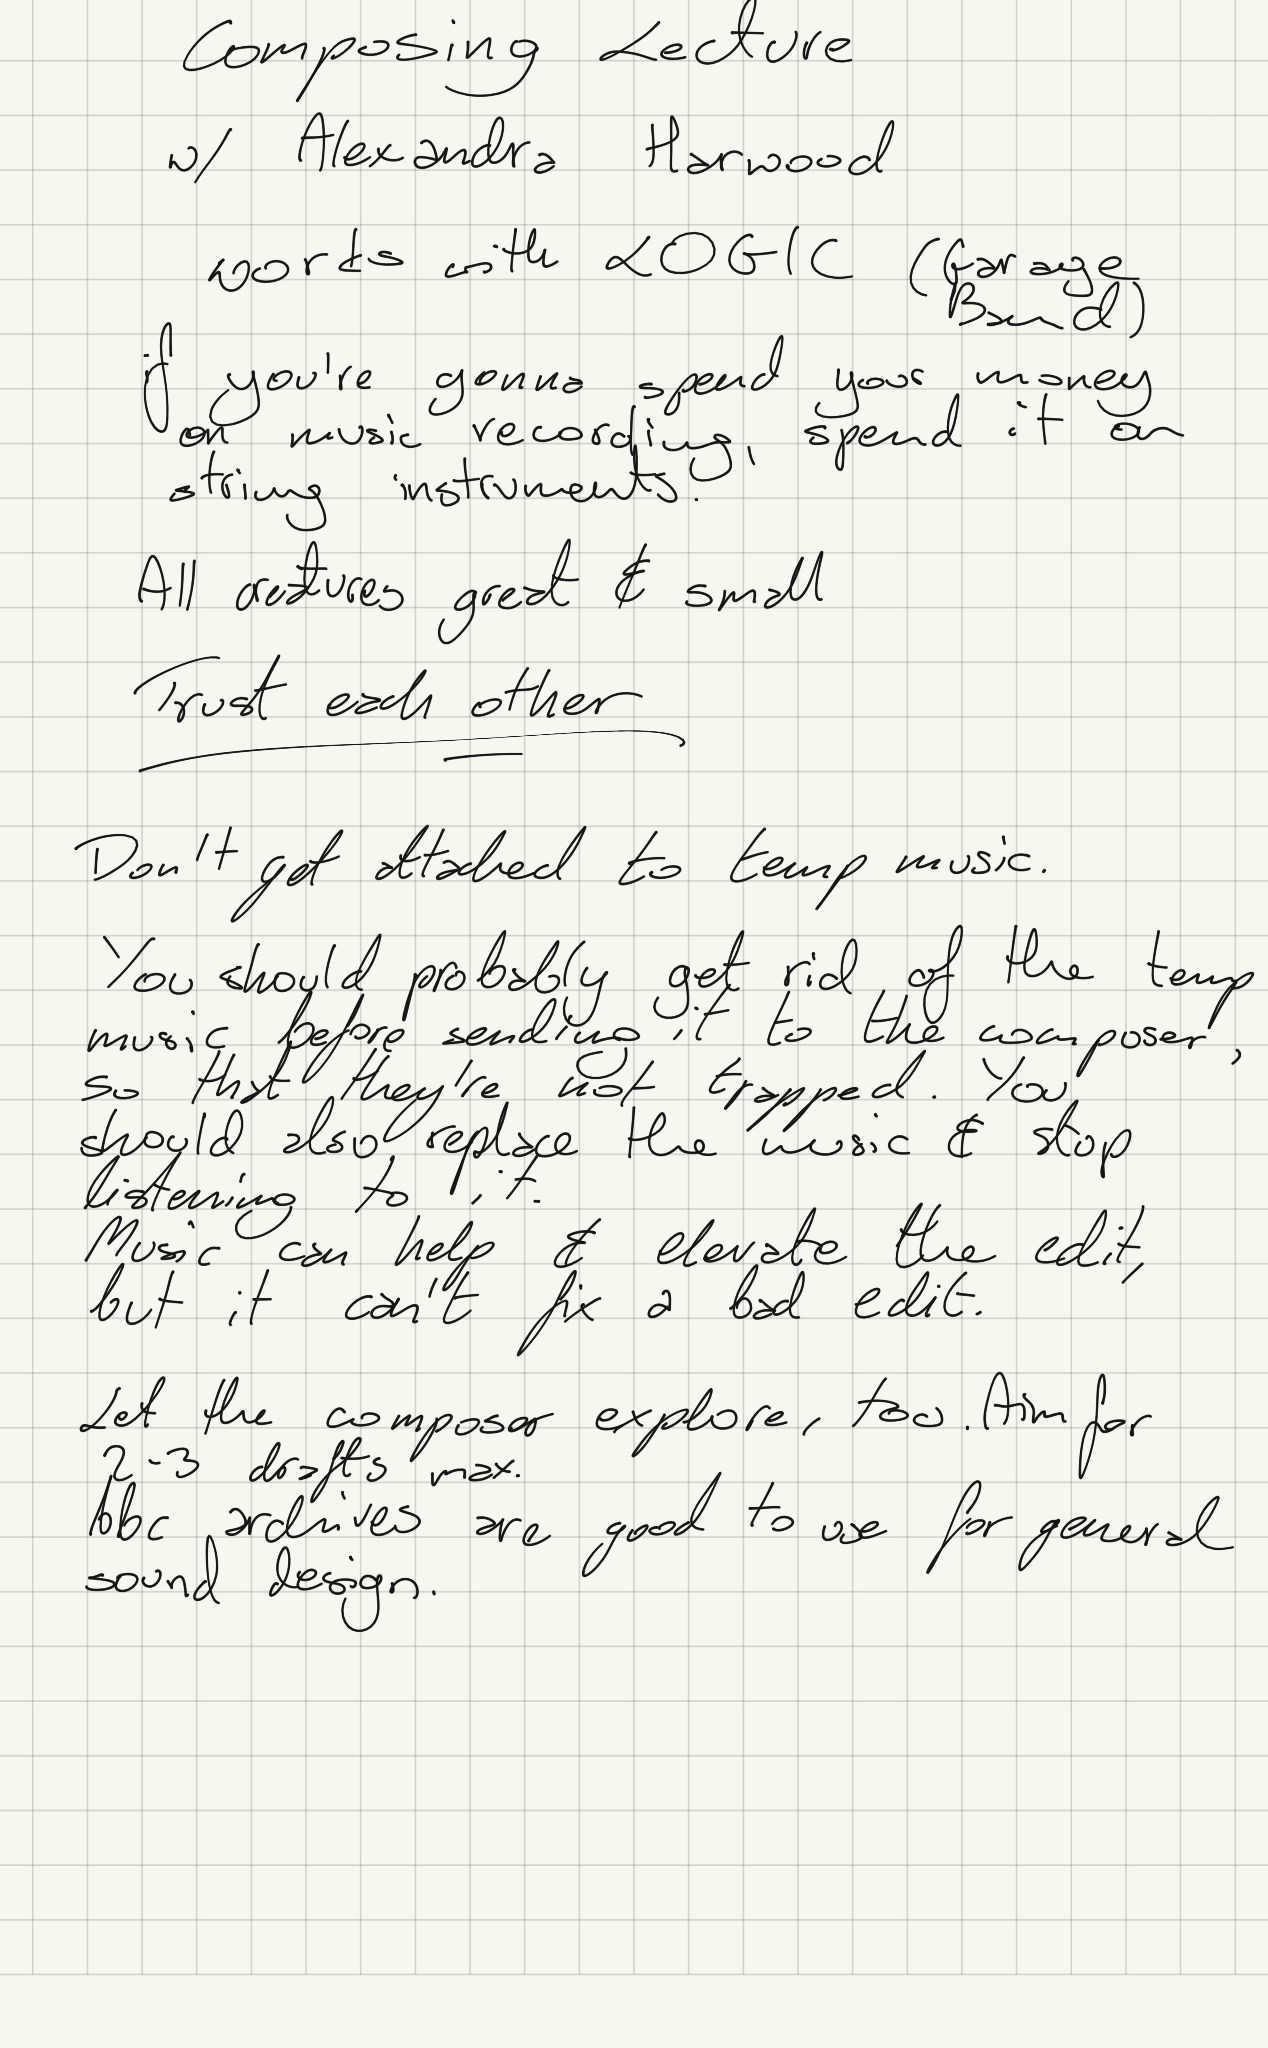 Composing Lecture
w/ Alexandra Harwood
works with LOGIC (Garage
Band)
if you're gonna spend your money
on music recording, spend it on
string instruments.
All creatures great & small
Trust each other
Don't get attached to temp music.
You should probably get rid of the temp
music before sending it to the composer,
so that they're not trapped. You
should also replace the music & stop
listening to it.
Music can help & elevate the edit,
but it can't fix a bad edit.
Let the composer explore, too. Aim for
2-3 drafts max.
bbc archives are good to use for general
sound design.